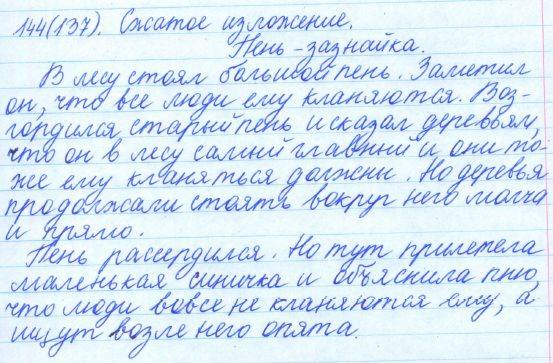 144(137). Сжатое изложение.
Пень-зазнайка.
В лесу стоял большой пень. Заметил
он, что все люди ему кланяются. Воз-
гордился старый пень и сказал деревьям,
что он в лесу самый главный и они то-
же ему кланяться должны. Но деревья
продолжали стоять вокруг него молча
и прямо.
Пень рассердился. Но тут прилетела
маленькая синичка и объяснила пню,
что люди вовсе не кланяются ему, а
ищут возле него опята.